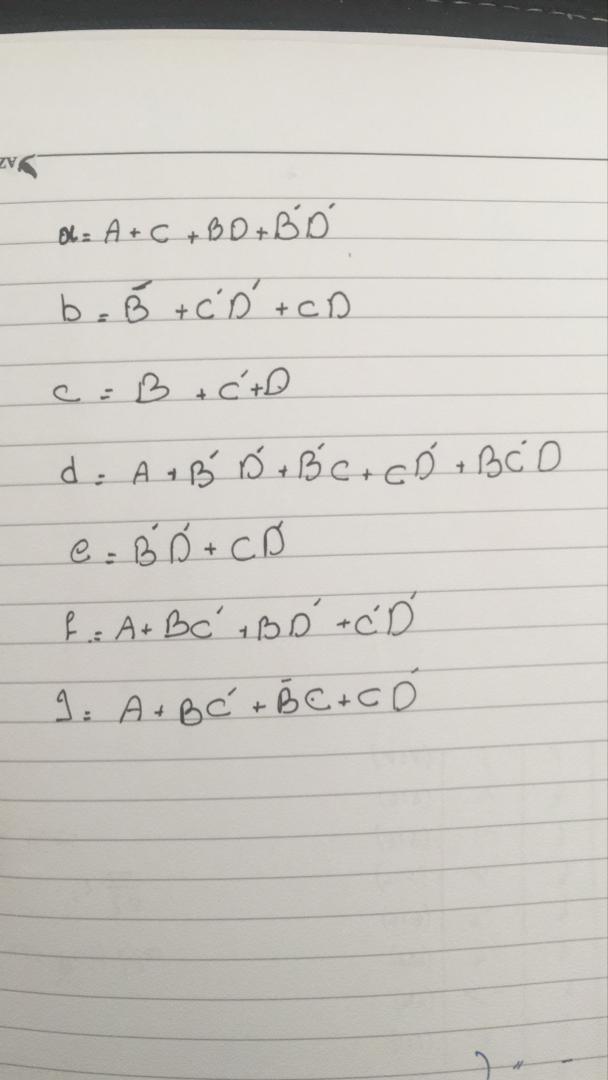 AZ
a = A + C + BD + B'D'
b = B̄ + C'D' + CD
c = B + C' + D
d = A + B'D' + B'C + CD' + BC'D
e = B'D' + CD'
f = A + BC' + BD' + C'D'
g = A + BC' + B̄C + CD'